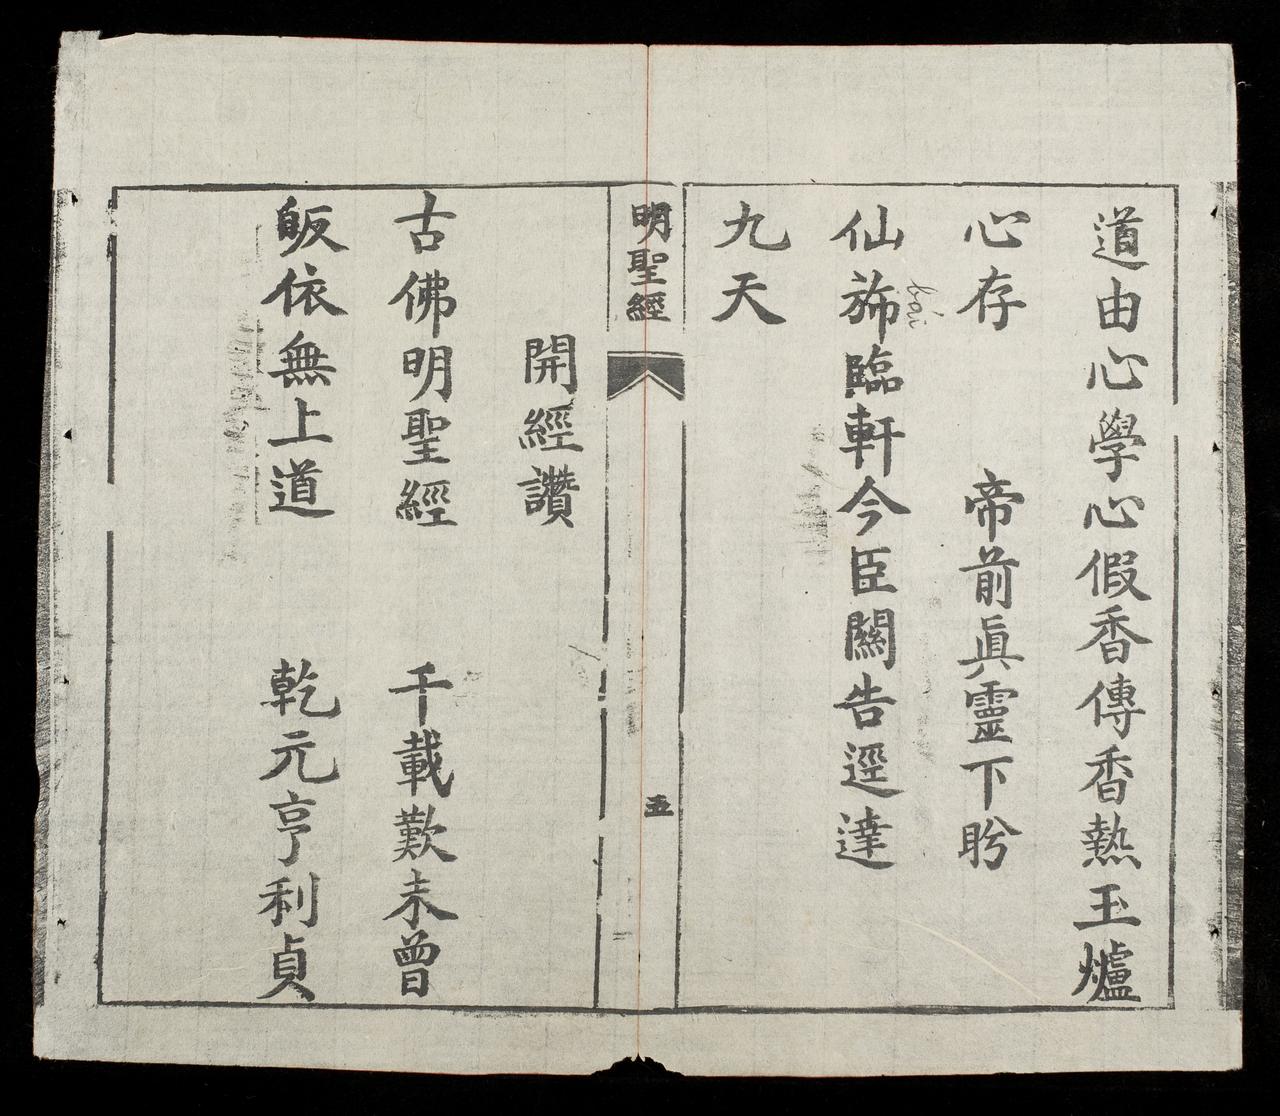 道由心學心假香傳香熱玉爐
心存 帝前眞靈下盻
仙斾臨軒今臣關告逕達
九天
明聖經
五
開經讚
古佛明聖經 千載歎未曾
皈依無上道 乾元亨利貞